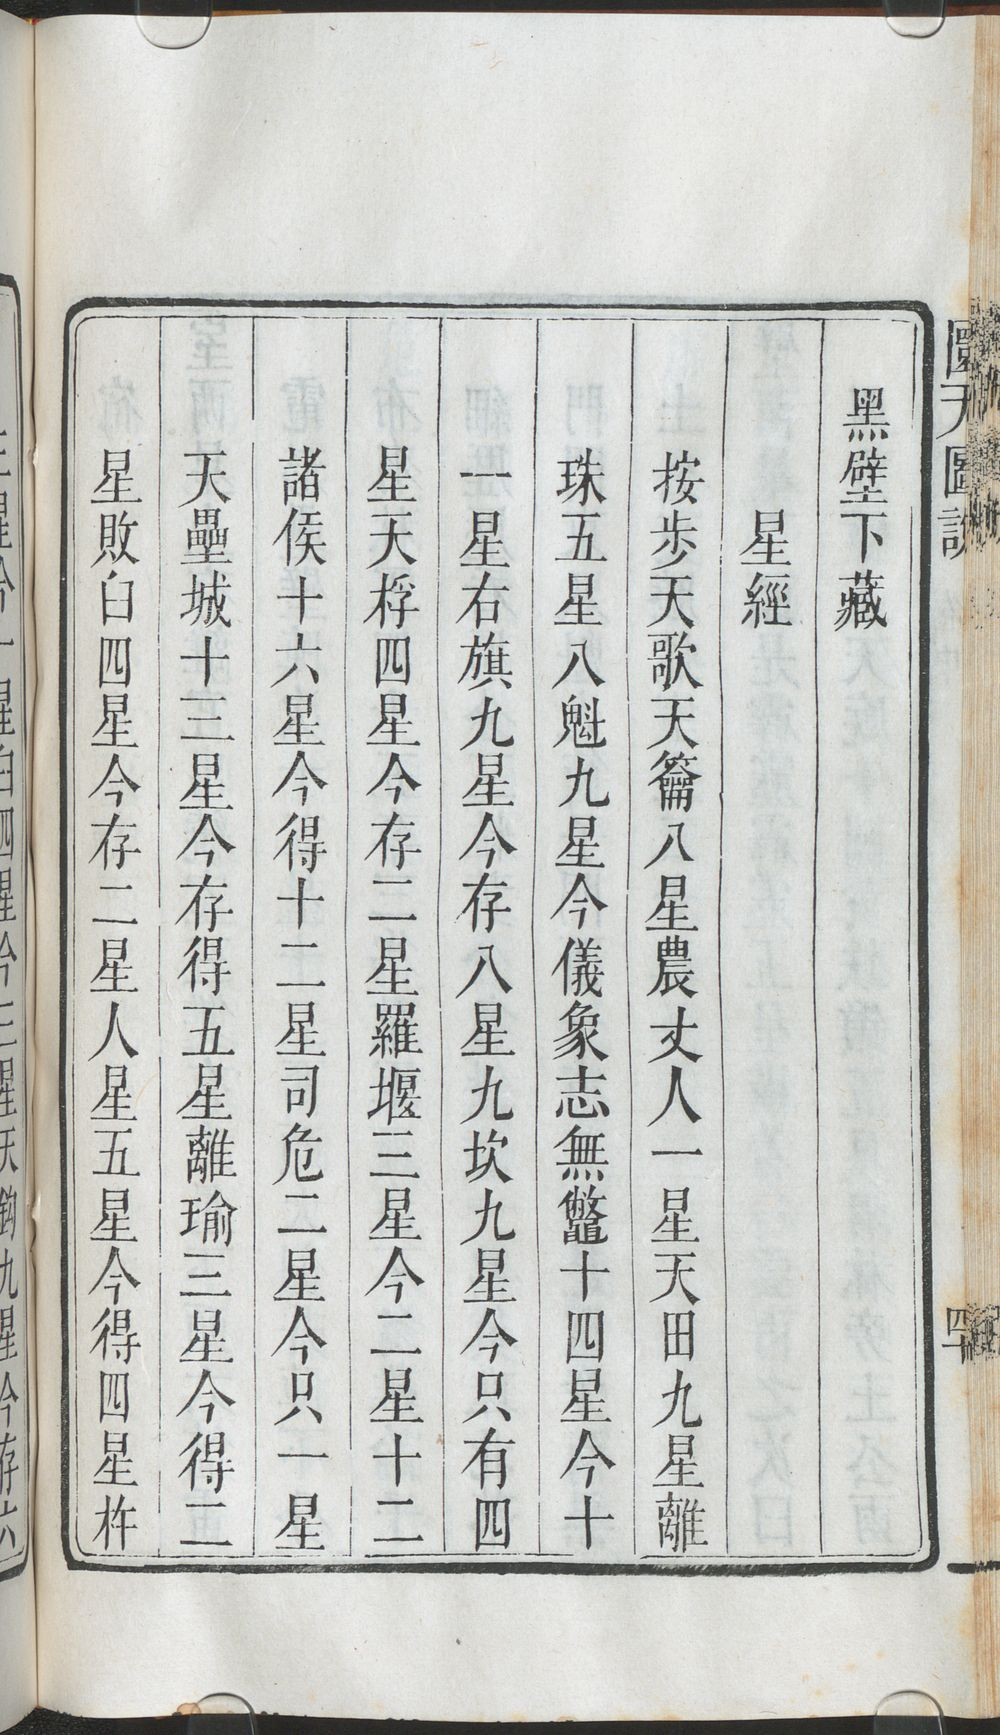 圜天圖說
四
黑壁下藏
星經
按步天歌天籥八星農丈人一星天田九星離
珠五星八魁九星今儀象志無鼈十四星今十
一星右旗九星今存八星九坎九星今只有四
星天桴四星今存二星羅堰三星今二星十二
諸侯十六星今得十二星司危二星今只一星
天壘城十三星今存得五星離瑜三星今得二
星敗臼四星今存二星人星五星今得四星杵